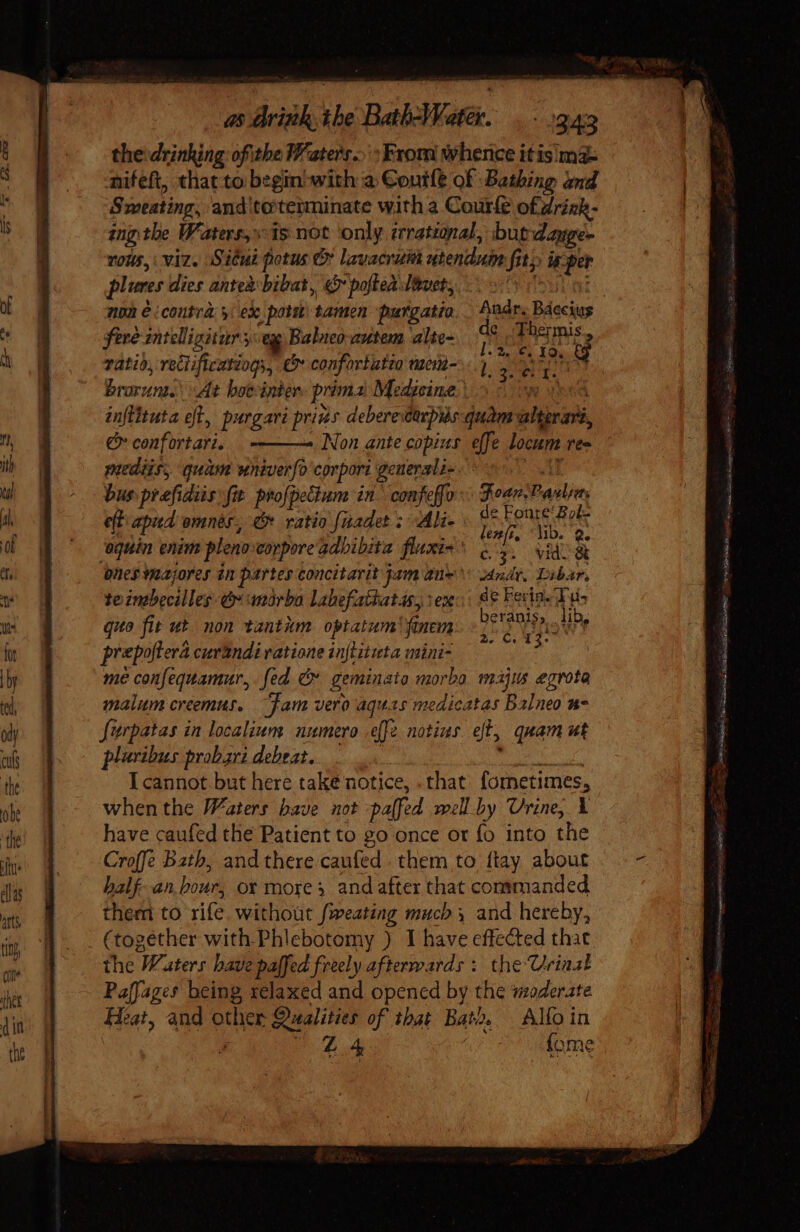 as drink the Bath-Water. 343
the drinking of the Waters. From whence it is ma-
nifeſt, that to begin with a Courſe of Bathing and
Sweating, and to terminate with a Courſe of drink-
ing the Waters, is not only irrational, but dange-
rous, viz. Sicui potus & lavacrum utendum ſit, is per
plures dies anteà bibat, & poſteà lavet,
non è contrà; ex potu tamen purgatio
ferè intelligitur; ex Balneo autem alte-
ratio, rectificatioq;, & confortatio mem-
brorum. At hoc inter prima Medicinæ
inſtituta eſt, purgari priùs debere corpus quàm alterari,
& confortari. —— Non ante copius eſſe locum re-
mediis, quàm univerſo corpori generali-
bus præſidiis ſit proſpectum in confeſſo
eſt apud omnes, & ratio ſuadet: Ali-
oquin enim pleno corpore adhibita fluxi-
ones majores in partes concitarit jam an-
te imbecilles & morbo labefactatas, ex
quo fit ut non tantùm optatum finem
præpoſterâ curandi ratione inſtituta mini-
mè conſequamur, ſed & geminato morbo majus ægrota
malum creemus. Jam verò aquas medicatas Balneo u-
ſurpatas in localium numero eſſe notius eſt, quam ut
pluribus probari debeat.
Andr. Baccius
de Thermis,
l. 2. c. 19. &
l. 3. c. 1.
Joan. Paulus
de Fonte Bol-
lenſi, lib. 2.
c. 3. vid. &
Andr. Libav.
de Ferin. Tu-
beranis, lib.
2. c. 13.
I cannot but here take notice, that ſometimes,
when the Waters have not paſſed well by Urine, I
have cauſed the Patient to go once or ſo into the
Croſſe Bath, and there cauſed them to ſtay about
half an hour, or more; and after that commanded
them to riſe without ſweating much; and hereby,
(together with Phlebotomy ) I have effected that
the Waters have paſſed freely afterwards: the Urinal
Paſſages being relaxed and opened by the moderate
Heat, and other Qualities of that Bath. Alſo in
Z 4 ſome